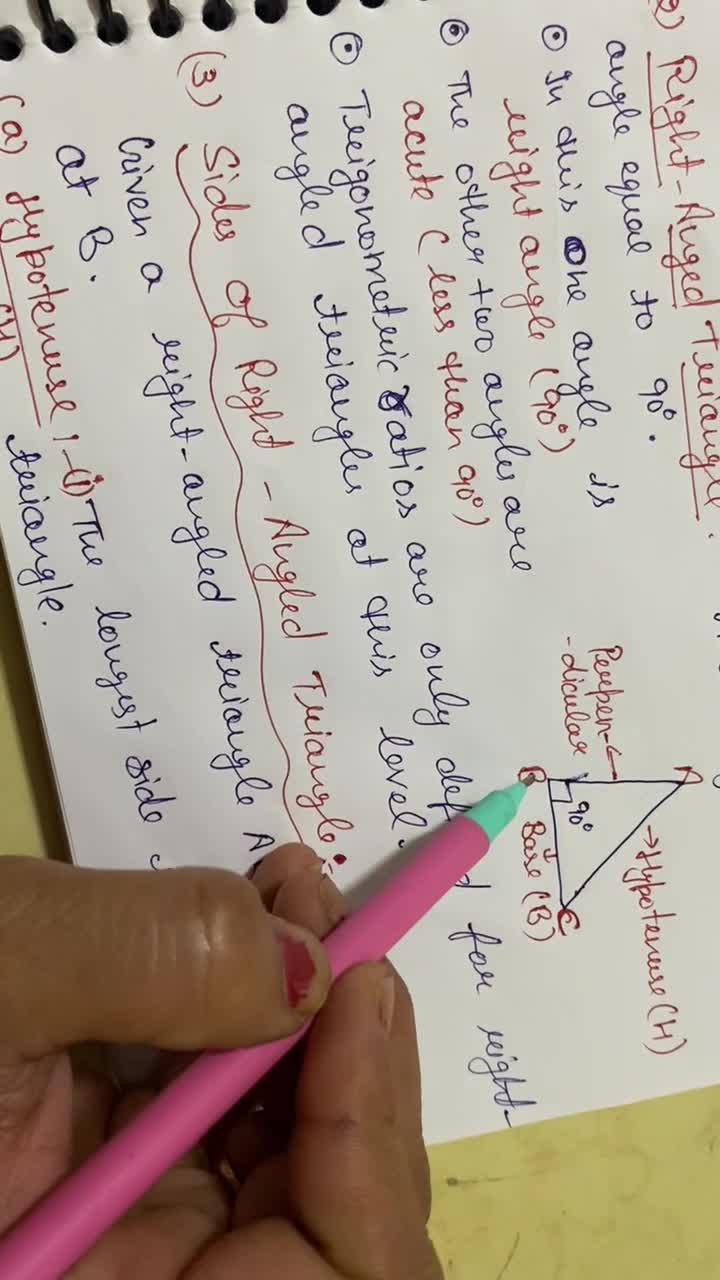 2) Right-Anged Triangle.
angle equal to 90°.
In this one angle is
right angle (90°)
The other two angles are
acute (less than 90°)
Trigonometric ratios are only for right-
angled triangles at this level.
(3) Sides of Right-Angled Triangle:
Given a right-angled triangle A
at B.
(a) Hypotenuse :-(i) The longest side
(H) triangle.
A
→Hypotenuse (H)
Perpen-
-dicular
90°
B
Base (B)
C